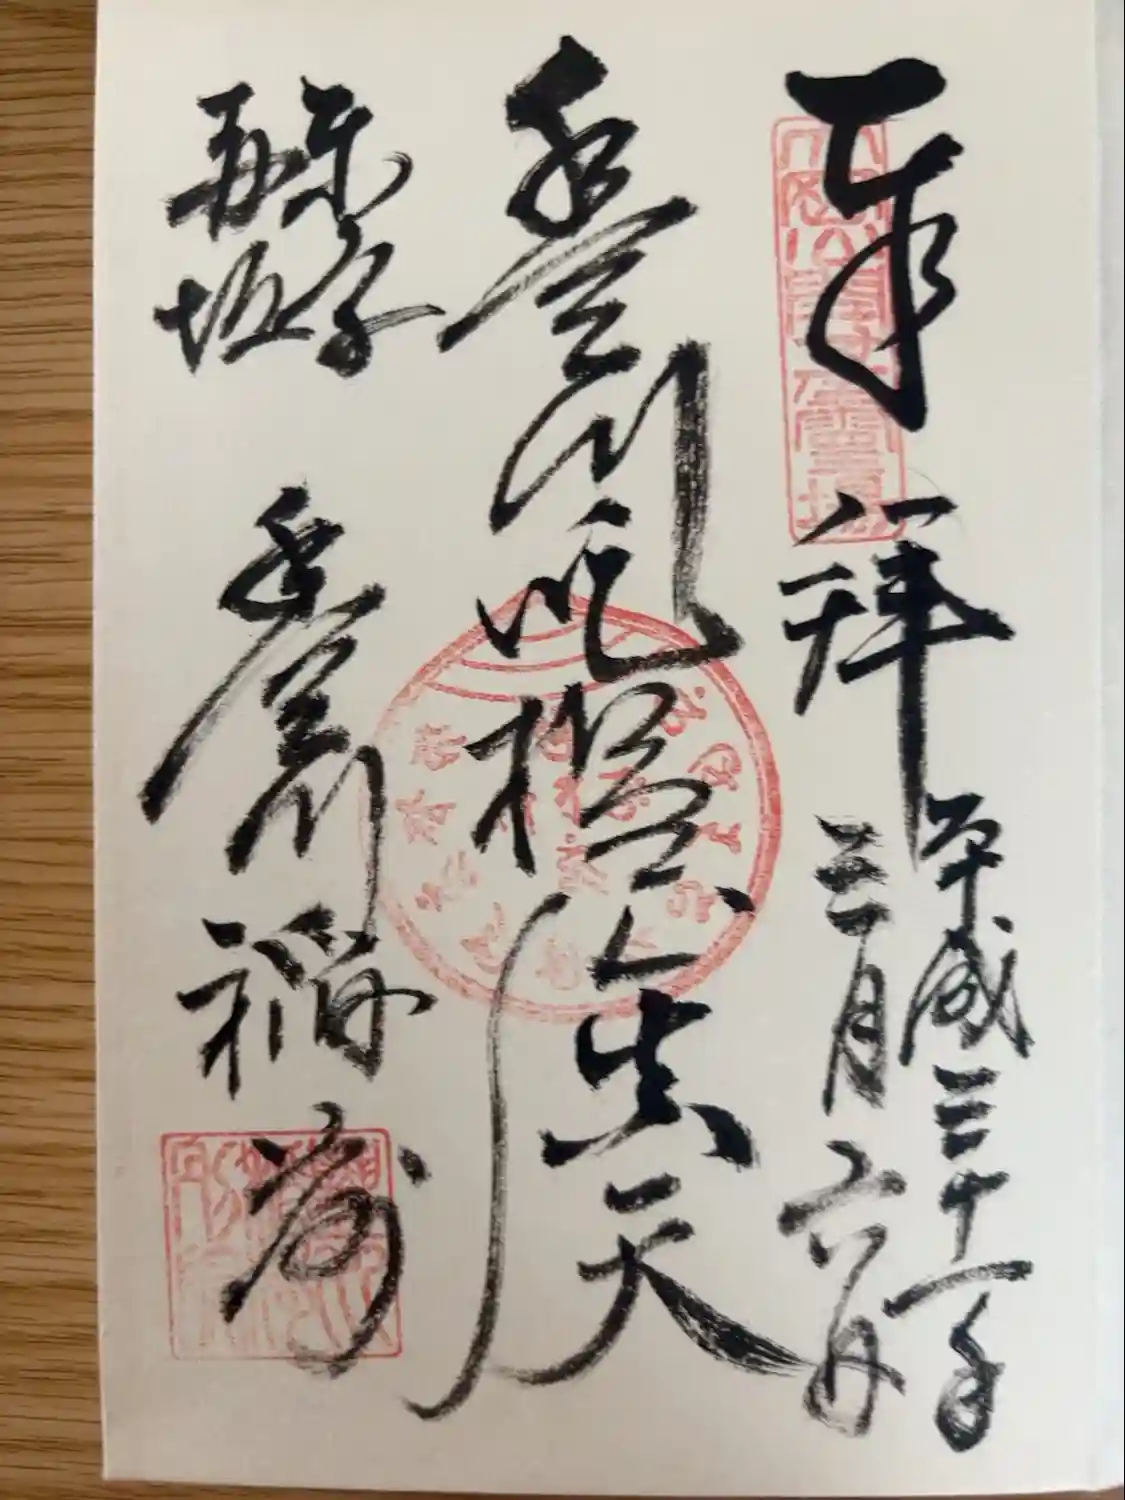 奉拝
平成三十一年
三月六日
豊川吒枳尼真天
東京
赤坂
豊川稲荷